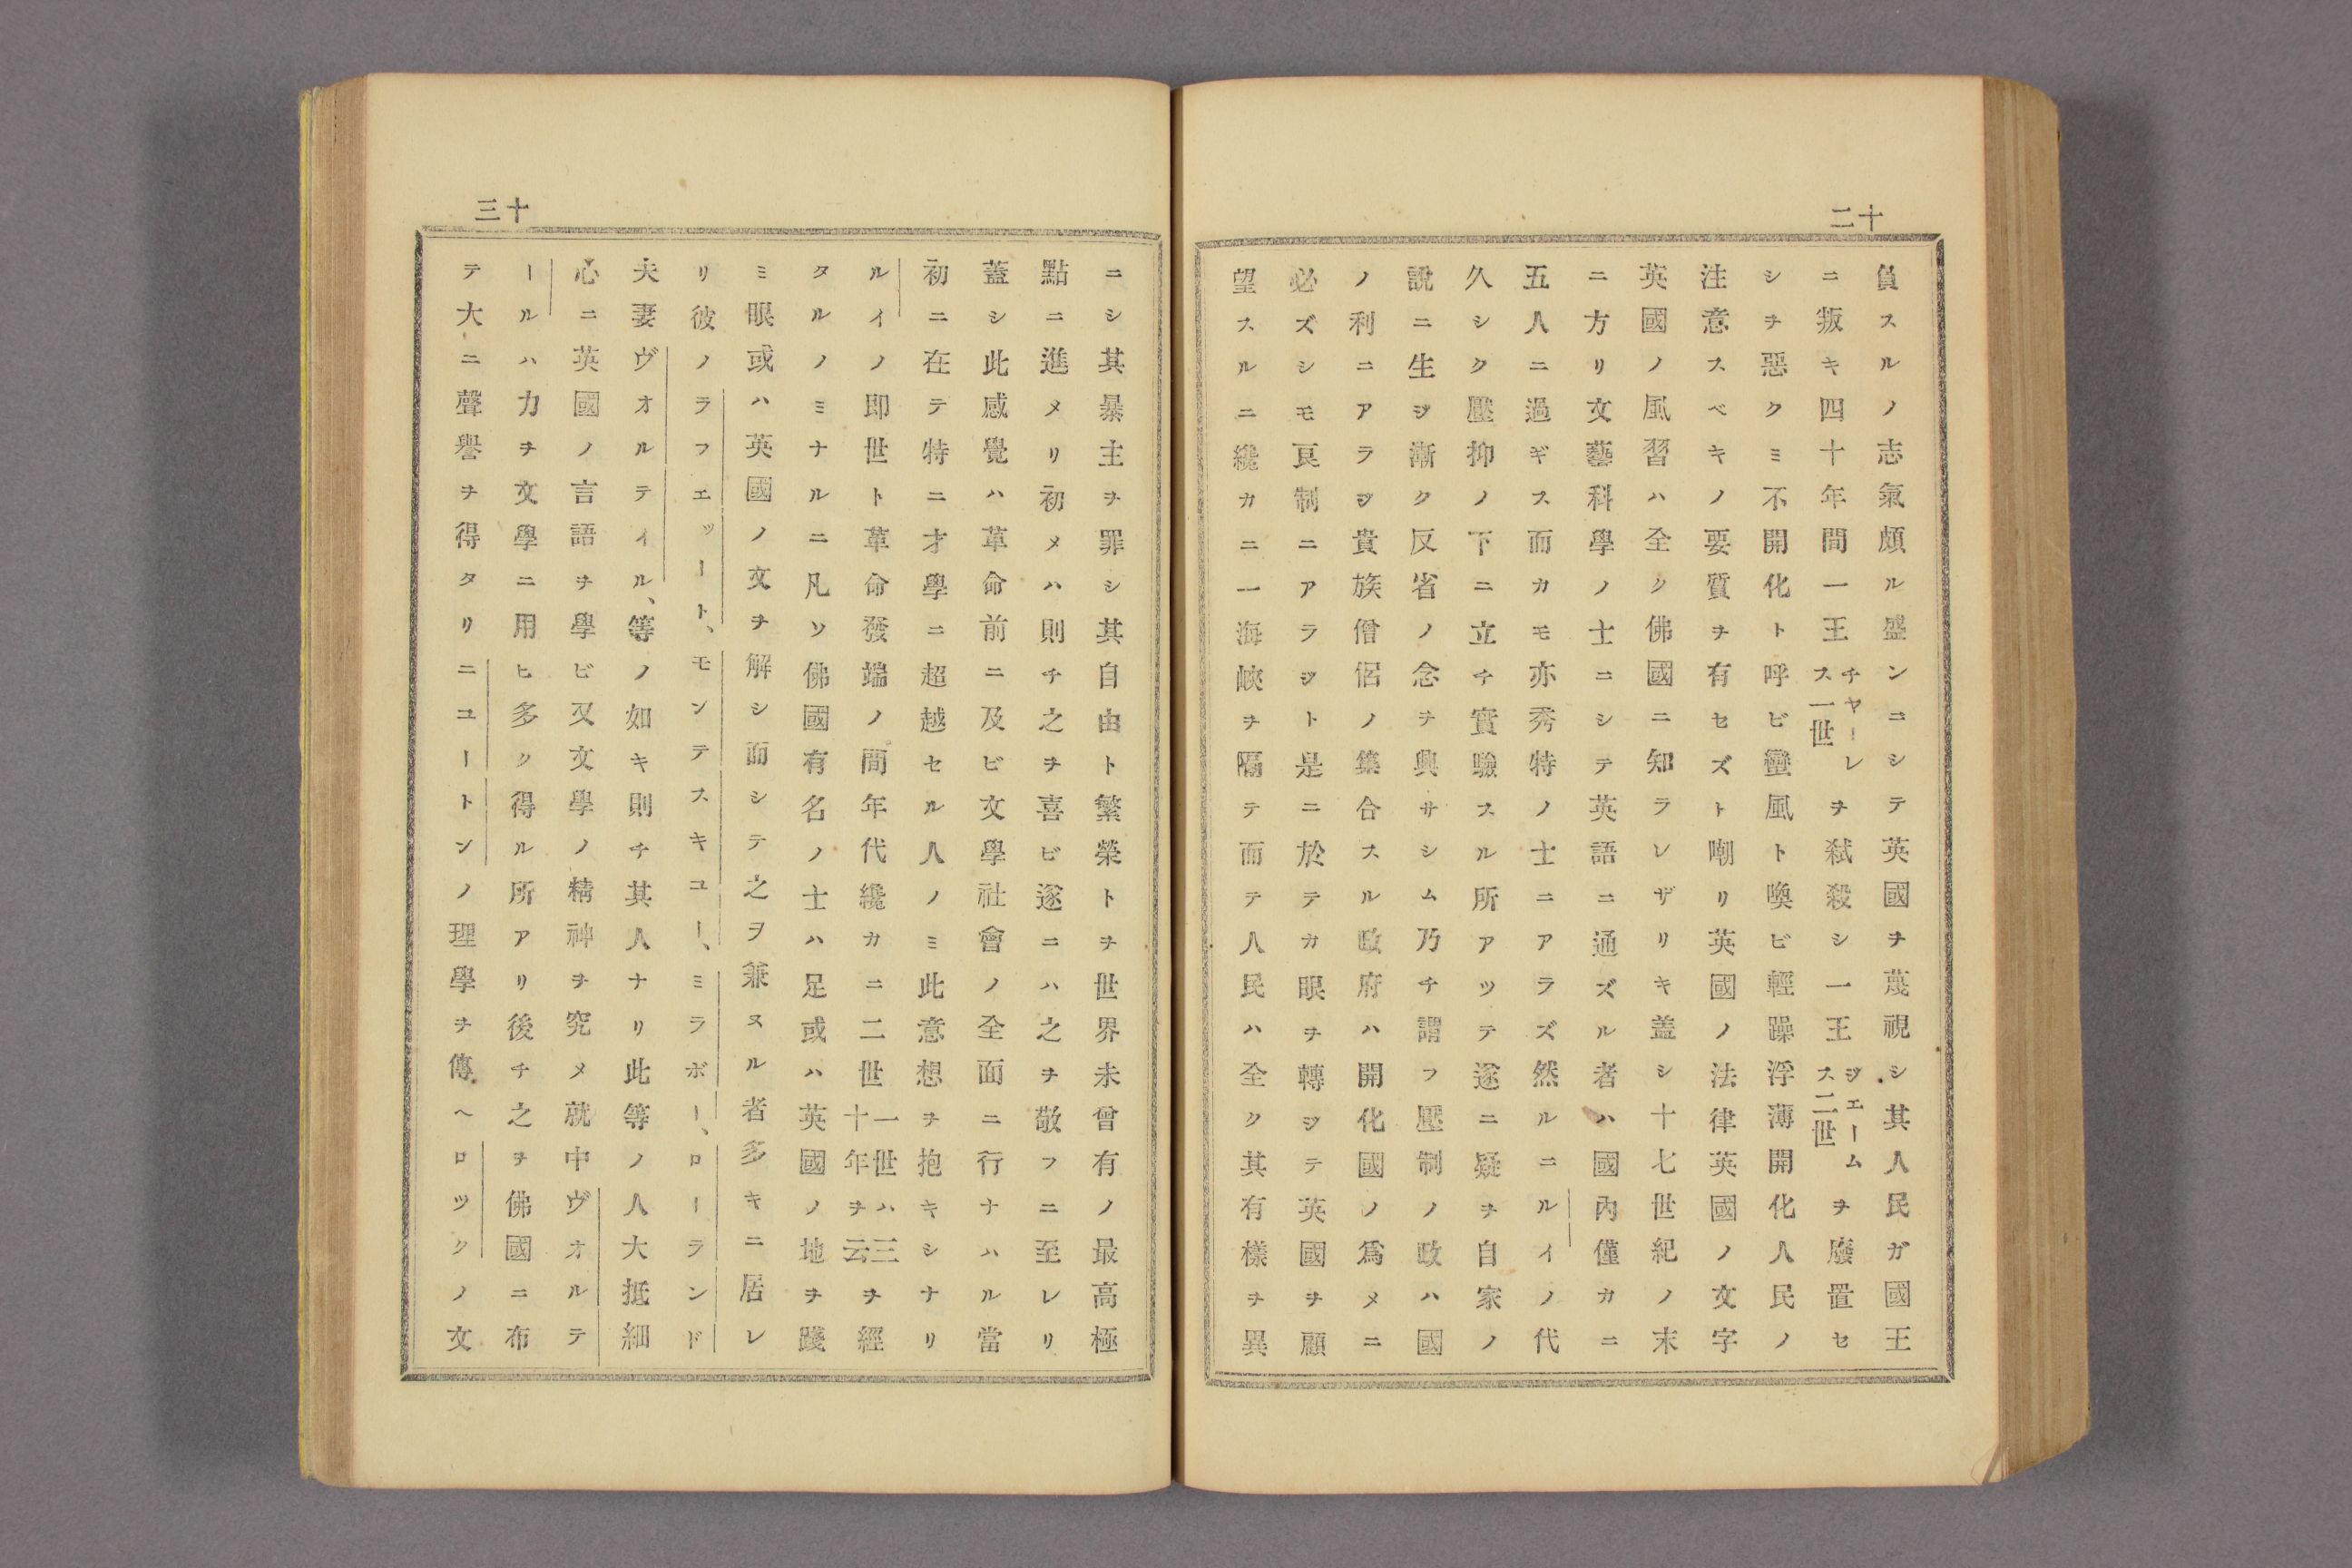 十二
負スルノ志氣頗ル盛ンニシテ英國ヲ蔑視シ其人民ガ國王
ニ叛キ四十年間一王チヤーレス一世ヲ弑殺シ一王ヂエームス二世ヲ廢置セ
シヲ惡クミ不開化ト呼ビ蠻風ト喚ビ輕躁浮薄開化人民ノ
注意スベキノ要質ヲ有セズト嘲リ英國ノ法律英國ノ文字
英國ノ風習ハ全ク佛國ニ知ラレザリキ盖シ十七世紀ノ末
ニ方リ文藝科學ノ士ニシテ英語ニ通ズル者ハ國內僅カニ
五人ニ過ギス而カモ亦秀特ノ士ニアラズ然ルニルイノ代
久シク壓抑ノ下ニ立チ實驗スル所アツテ遂ニ疑ヲ自家ノ
說ニ生ジ漸ク反省ノ念ヲ興サシム乃チ謂フ壓制ノ政ハ國
ノ利ニアラヂ貴族僧侶ノ集合スル政府ハ開化國ノ爲メニ
必ズシモ良制ニアラヂト是ニ於テカ眼ヲ轉ヂテ英國ヲ顧
望スルニ纔カニ一海峽ヲ隔テ而テ人民ハ全ク其有樣ヲ異
十三
ニシ其暴主ヲ罪シ其自由ト繁榮トヲ世界未曾有ノ最高極
點ニ進メリ初メハ則チ之ヲ喜ビ遂ニハ之ヲ敬フニ至レリ
蓋シ此感覺ハ革命前ニ及ビ文學社會ノ全面ニ行ナハル當
初ニ在テ特ニ才學ニ超越セル人ノミ此意想ヲ抱キシナリ
ルイノ即世ト革命發端ノ間年代纔カニ二世一世ハ三十年ヲ云ヲ經
タルノミナルニ凡ソ佛國有名ノ士ハ足或ハ英國ノ地ヲ踐
ミ眼或ハ英國ノ文ヲ解シ而シテ之ヲ兼ヌル者多キニ居レ
リ彼ノラフエツート、モンテスキユー、ミラボー、ローランド
夫妻ヴオルテイル、等ノ如キ則チ其人ナリ此等ノ人大抵細
心ニ英國ノ言語ヲ學ビ又文學ノ精神ヲ究メ就中ヴオルテ
ールハ力ヲ文學ニ用ヒ多ク得ル所アリ後チ之ヲ佛國ニ布
テ大ニ聲譽ヲ得タリニユートンノ理學ヲ傳ヘロツクノ文